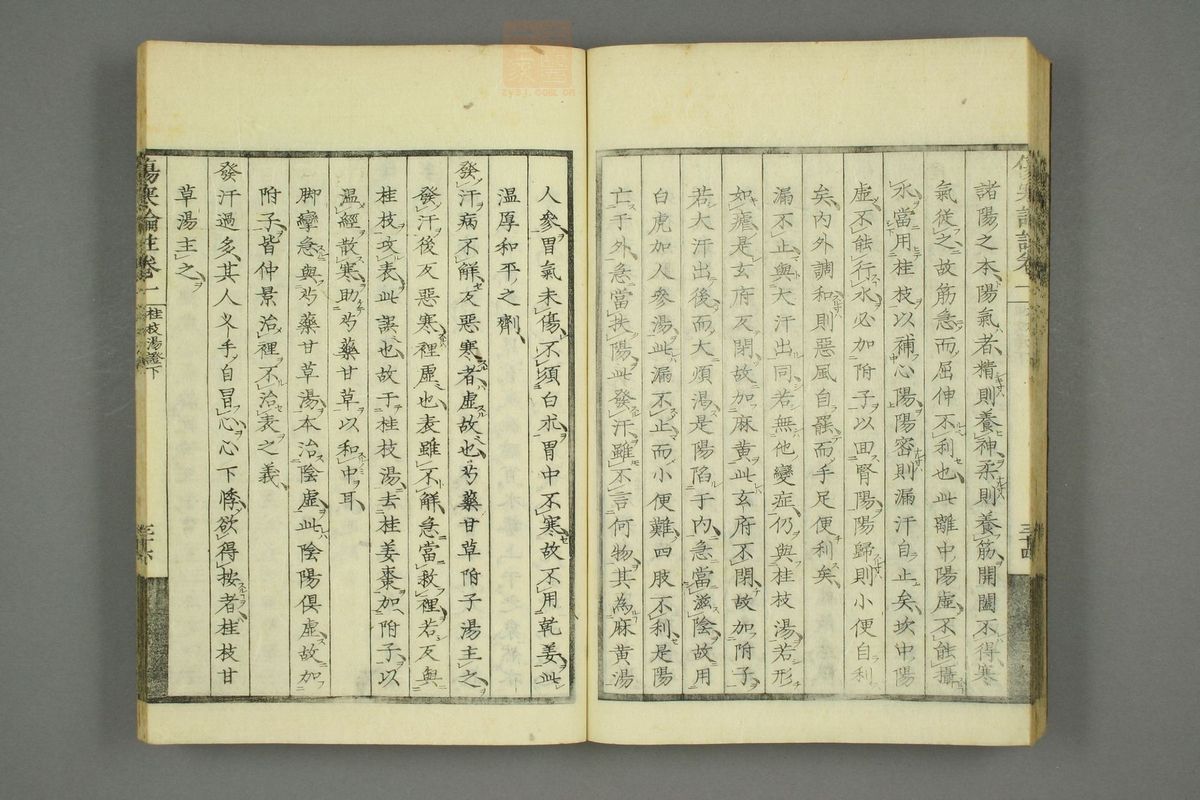 諸陽之本陽氣者精則養神柔則養筋開闔不得寒
氣從之故筋急而屈伸不利也此離中陽虛不能攝
水當用桂枝以補心陽陽密則漏汗自止矣坎中陽
虛不能行水必加附子以囬腎陽陽歸則小便自利
矣內外調和則惡風自罷而手足便利矣
漏不止與大汗出同若無他變症仍與桂枝湯若形
如瘧是玄府反閉故加麻黃此玄府不閉故加附子
若大汗出後而大煩渴是陽陷于內急當滋陰故用
白虎加人參湯此漏不止而小便難四肢不利是陽
亡于外急當扶陽此發汗雖不言何物其為麻黃湯
傷寒論註卷一
桂枝湯證下
三十六
人參胃氣未傷不須白朮胃中不寒故不用乾姜此
溫厚和平之劑
發汗病不解反惡寒者虛故也芍藥甘草附子湯主之
發汗後反惡寒裡虛也表雖不解急當救裡若反與
桂枝攻表此誤也故于桂枝湯去桂姜棗加附子以
溫經散寒助芍藥甘草以和中耳
脚攣急與芍藥甘草湯本治陰虛此陰陽俱虛故加
附子皆仲景治裡不治表之義
發汗過多其人叉手自冒心心下悸欲得按者桂枝甘
草湯主之